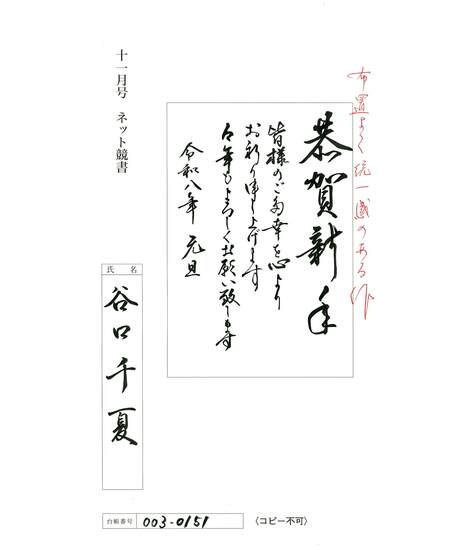 布置よく統一感のある作
恭賀新年
皆様のご多幸を心より
お祈り申し上げます
今年もよろしくお願い致します
令和八年 元旦
十一月号 ネット競書
氏名
谷口千夏
台帳番号 003-0151
〈コピー不可〉